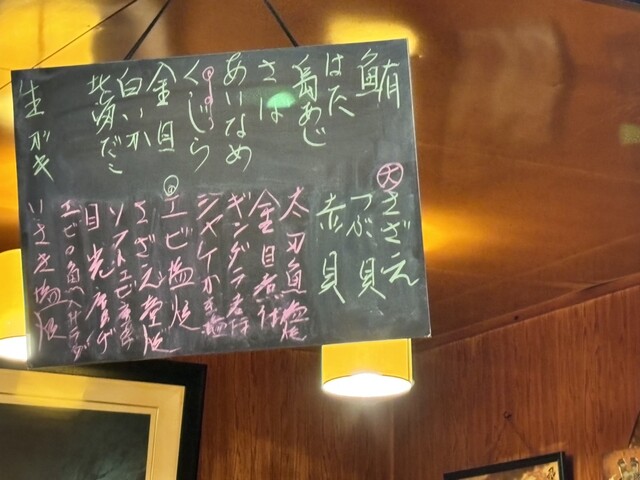 鮪
はた
島あじ
さば
あいなめ
くじら
金目
白いか
北海だこ
生ガキ
大さざえ
つぶ貝
赤貝
太刀魚塩焼
金目煮付
ギンダラ煮付
シャケかま塩
エビ塩焼
さざえ壺焼
ソフトエビ
目光唐揚げ
エビ
いさき塩焼